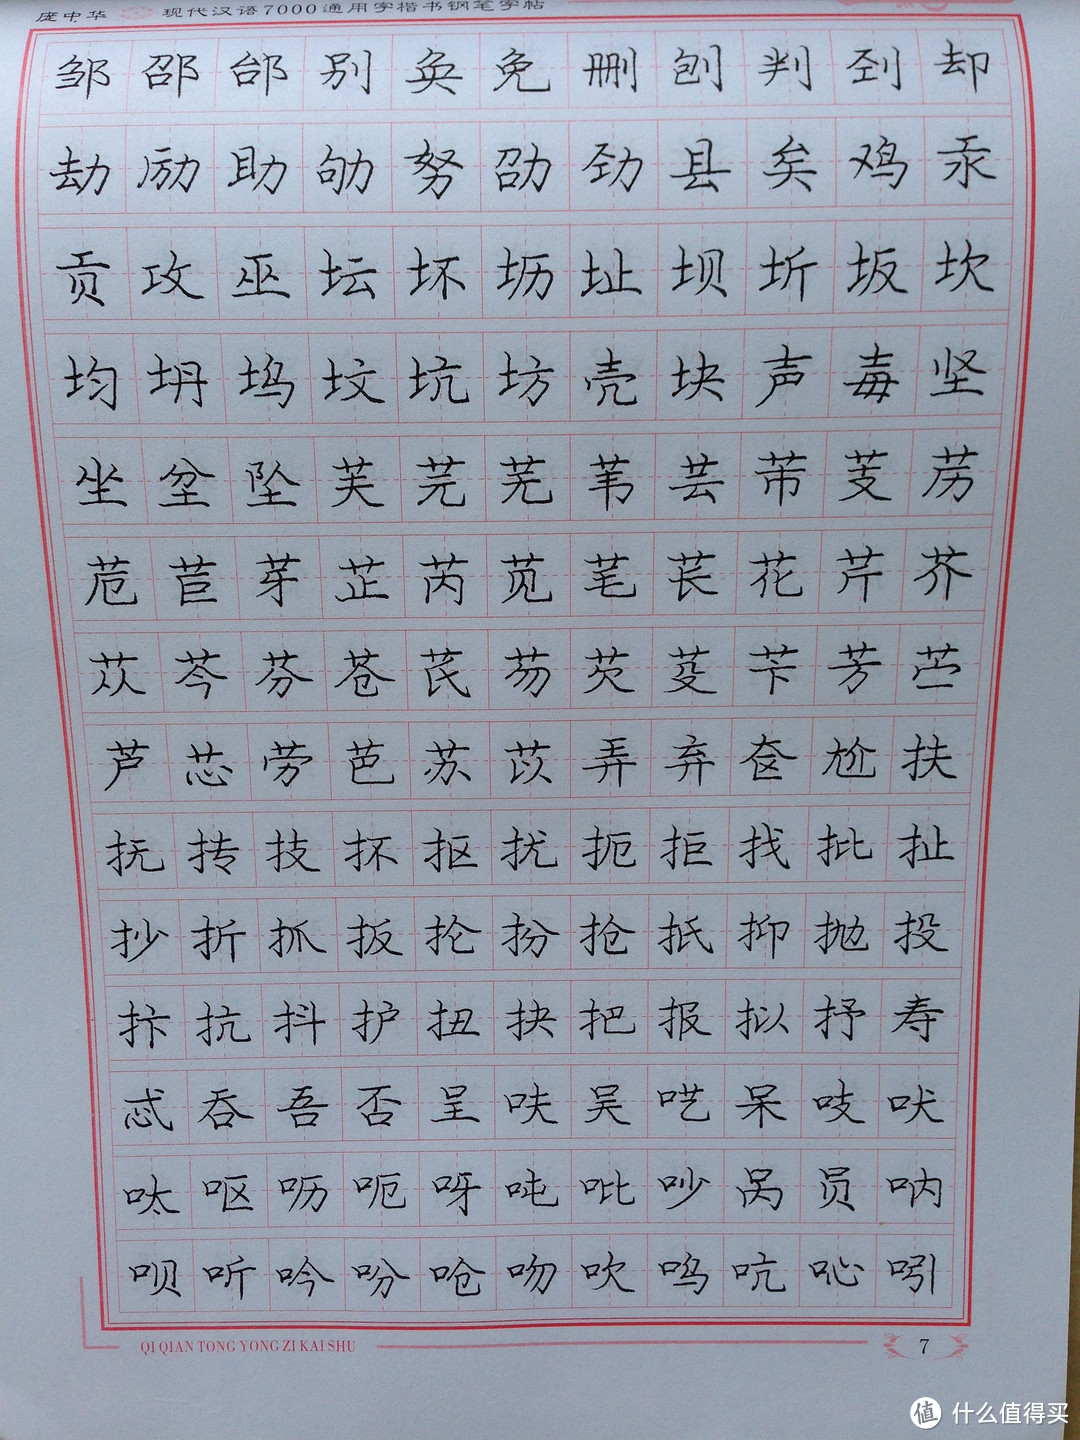 庞中华 现代汉语7000通用字楷书钢笔字帖
邹邵邰别奂免删刨判刭却
劫励助劬努邵劲县矣鸡汞
贡攻巫坛坏坜址坝圻坂坎
均坍坞坟坑坊壳块声毒坚
坐坌坠芙芫芜苇芸芾芰苈
苊苣芽芷芮苋芼苌花芹芥
苁芩芬苍芪芴芡芟苄芳苎
芦芯劳芭苏苡弄弃奁尬扶
抚抟技抔抠扰扼拒找批扯
抄折抓扳抡扮抢抵抑抛投
抃抗抖护扭抉把报拟抒寿
忒吞吾否呈呋吴呓呆吱吠
呔呕呖呃呀吨吡吵呙员呐
呗听吟吩呛吻吹呜吭吣吲
QI QIAN TONG YONG ZI KAI SHU
7
值 什么值得买